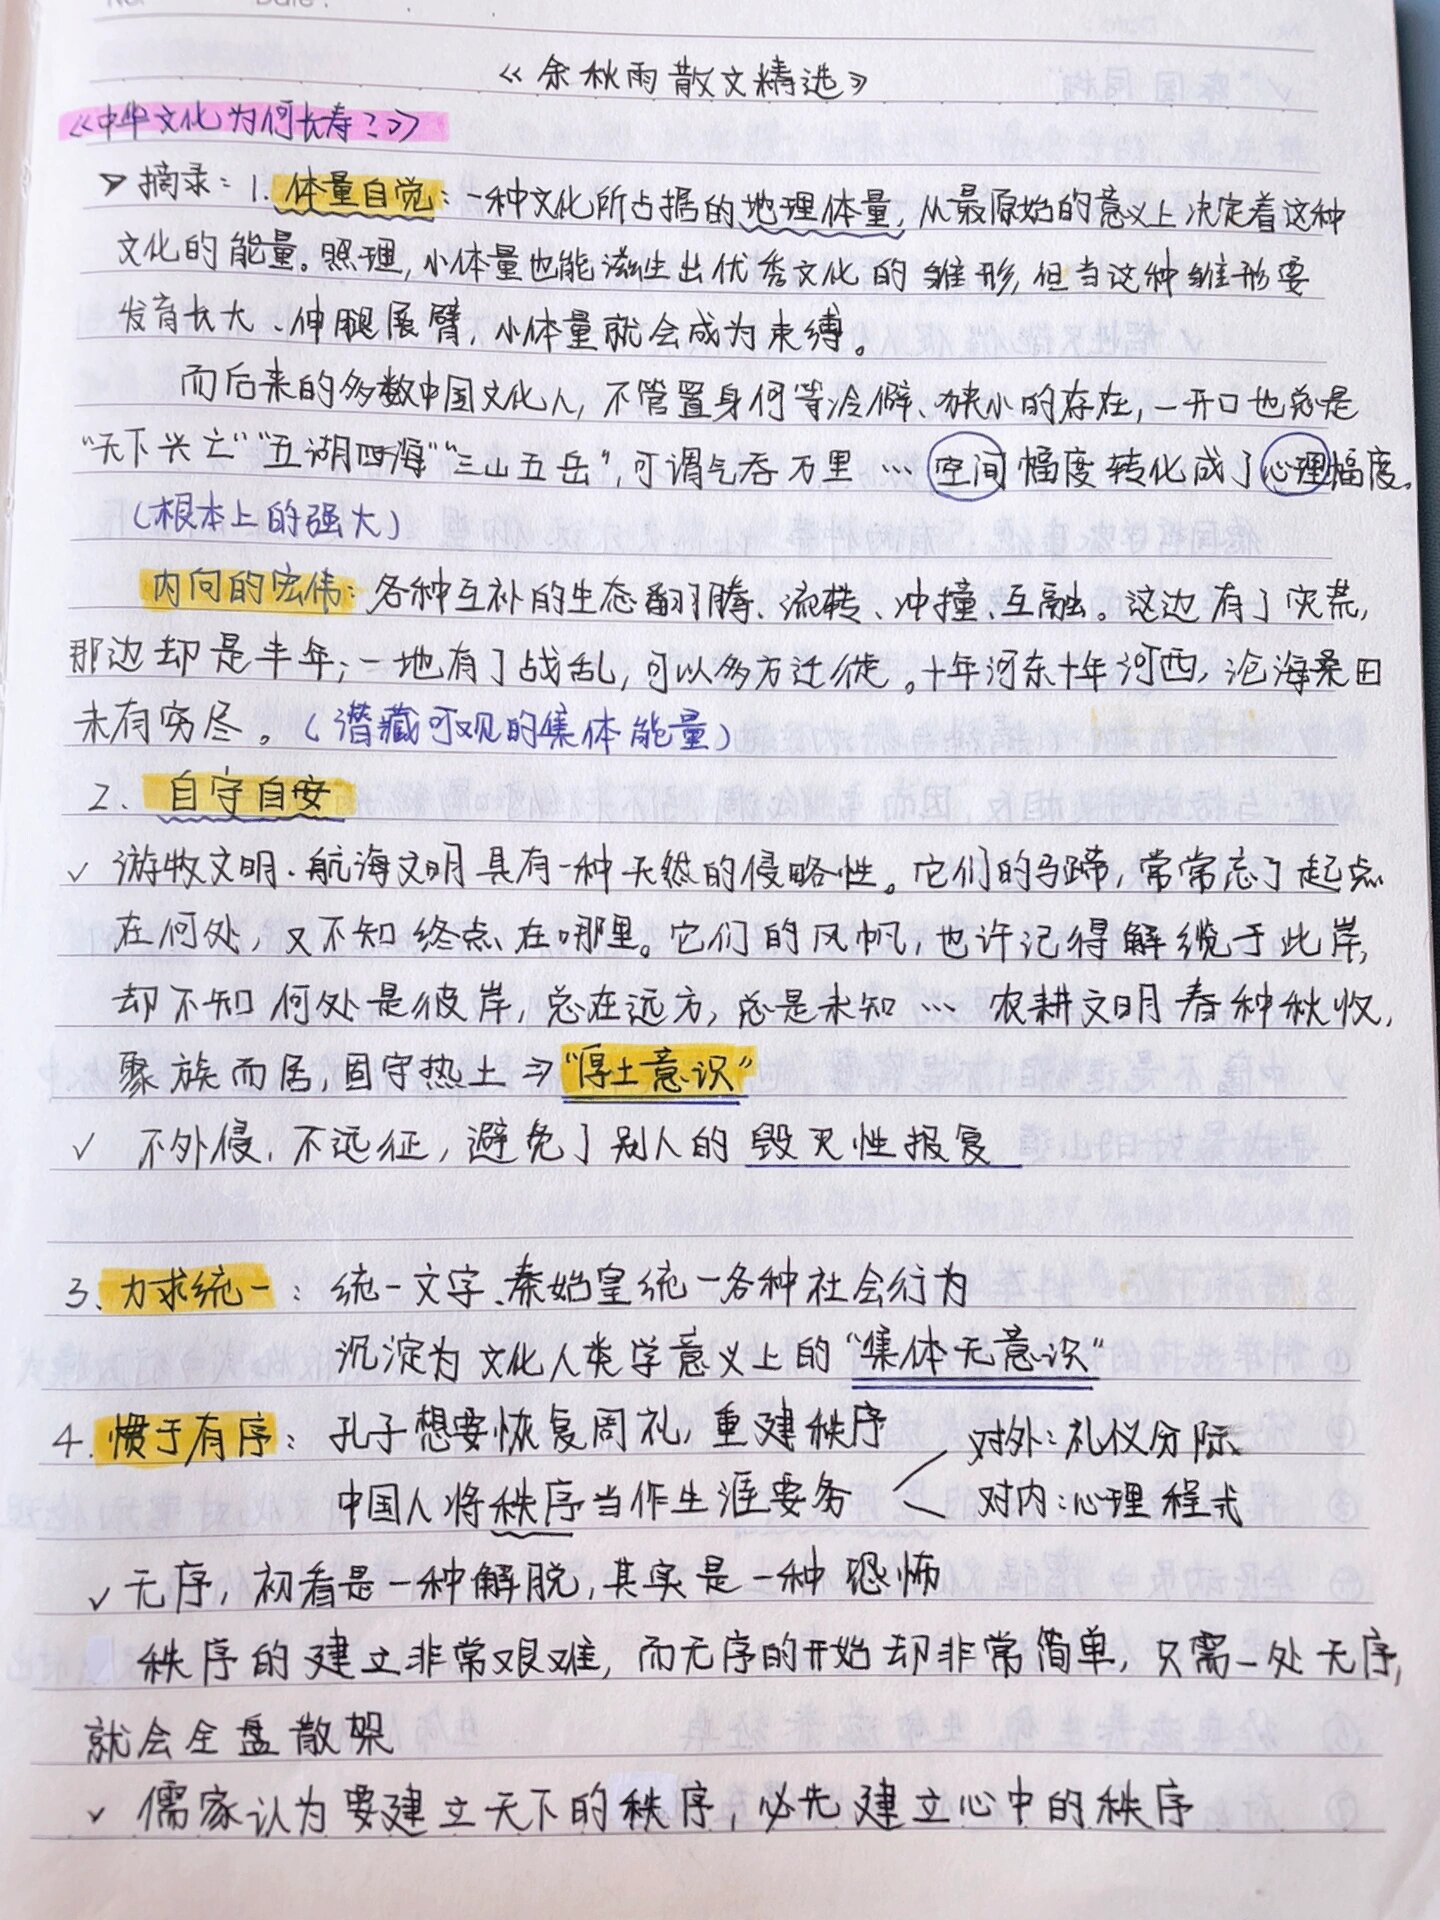 《余秋雨散文精选》
《中华文化为何长寿？》
摘录：1. 体量自觉：一种文化所占据的地理体量，从最原始的意义上决定着这种
文化的能量。照理，小体量也能滋生出优秀文化的雏形，但当这种雏形要
发育长大、伸腿展臂，小体量就会成为束缚。
而后来的多数中国文化人，不管置身何等冷僻、狭小的存在，一开口也总是
“天下兴亡”“五湖四海”“三山五岳”，可谓气吞万里…空间幅度转化成了心理幅度。
（根本上的强大）
内向的宏伟：各种互补的生态翻腾、流转、冲撞、互融。这边有了灾荒，
那边却是丰年；一地有了战乱，可以多方迁徙。十年河东十年河西，沧海桑田
未有穷尽。（潜藏可观的集体能量）
2. 自守自安
✓ 游牧文明、航海文明具有一种天然的侵略性。它们的马蹄，常常忘了起点
在何处，又不知终点在哪里。它们的风帆，也许记得解缆于此岸，
却不知何处是彼岸，总在远方，总是未知… 农耕文明春种秋收，
聚族而居，固守热土⇒“厚土意识”
✓ 不外侵，不远征，避免了别人的毁灭性报复
3. 力求统一：统一文字、秦始皇统一各种社会行为
沉淀为文化人类学意义上的“集体无意识”
4. 惯于有序：孔子想要恢复周礼，重建秩序
对外：礼仪分际、
中国人将秩序当作生涯要务
对内：心理程式
✓ 无序，初看是一种解脱，其实是一种恐怖
秩序的建立非常艰难，而无序的开始却非常简单，只需一处无序，
就会全盘散架
✓ 儒家认为要建立天下的秩序，必先建立心中的秩序